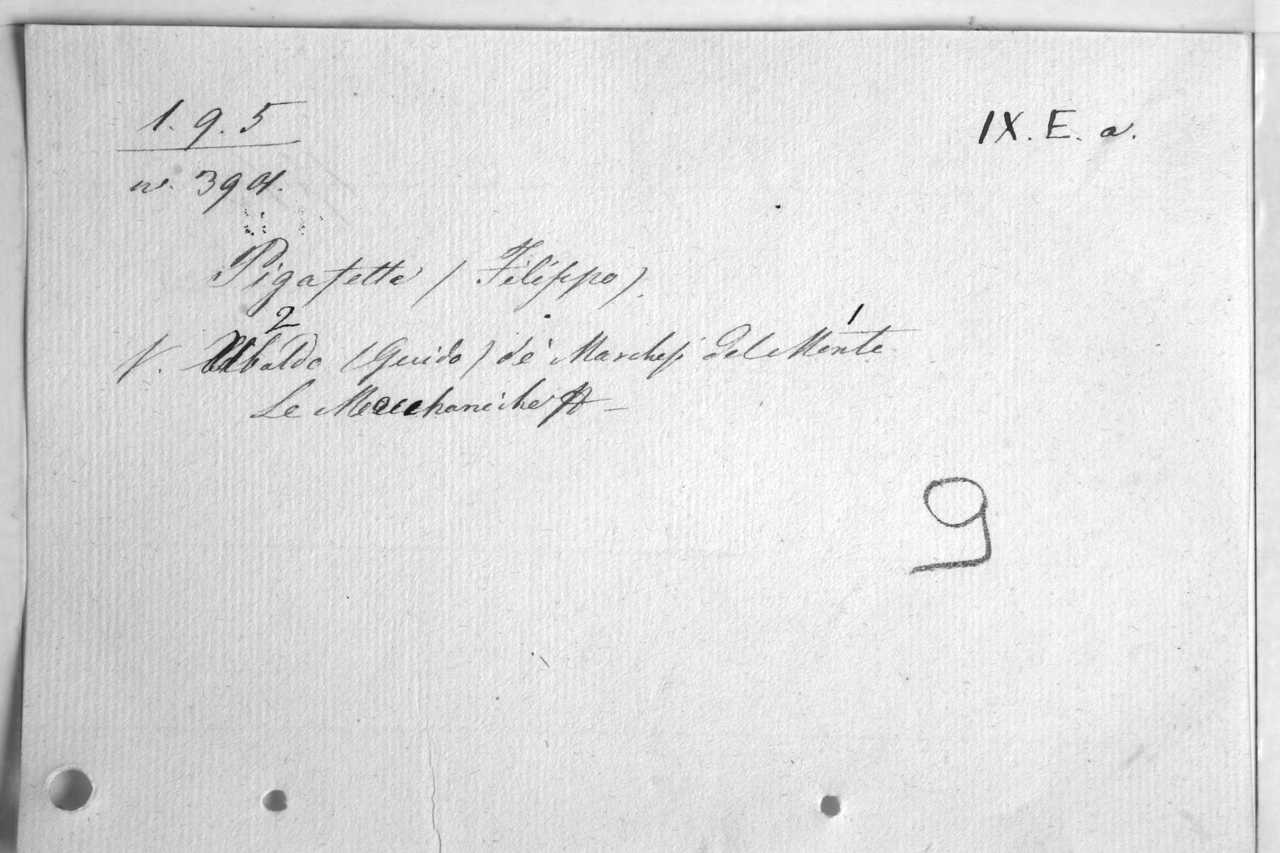 1.9.5
IX. E. a.
n. 3901.
Pigafette (Filippo).
2 1
V. Ubaldo (Guido) de Marchesi del Monte
Le Mecchaniche
9